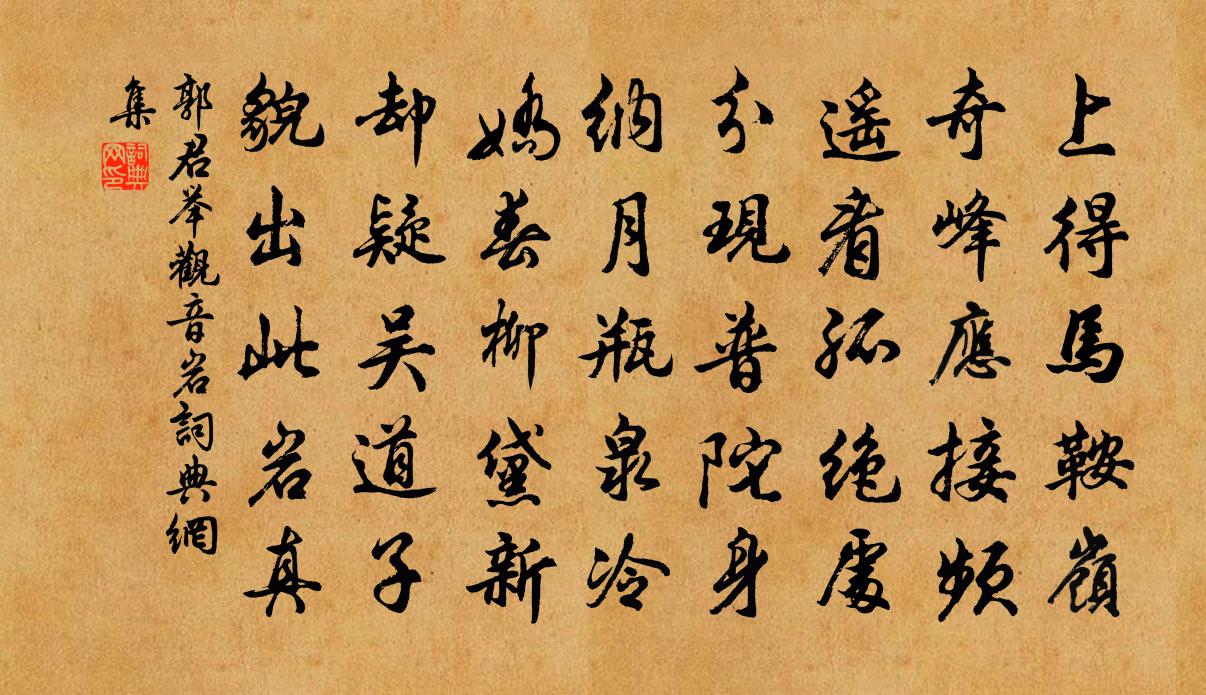 上得馬鞍嶺
奇峰應接頻
遥看孤绝處
分現普陀身
納月瓶泉冷
嬌春柳黛新
却疑吴道子
貌出此岩真
郭君举觀音岩詞典網
集
詞典網印